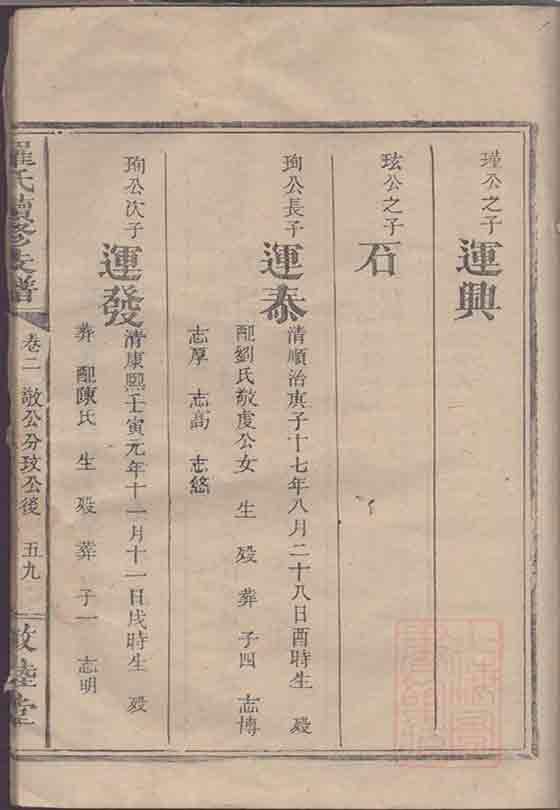 瑾公之子
運興
玹公之子
石
珣公長子
運泰
清順治庚子十七年八月二十八日酉時生 歿
配劉氏敬虔公女 生 歿 葬 子四 志博
志厚 志高 志悠
珣公次子
運發
清康熙壬寅元年十一月十一日戌時生 歿
葬 配陳氏 生 歿 葬 子一 志明
羅氏續修支譜
卷二 敬公分玟公後 五九
敦睦堂